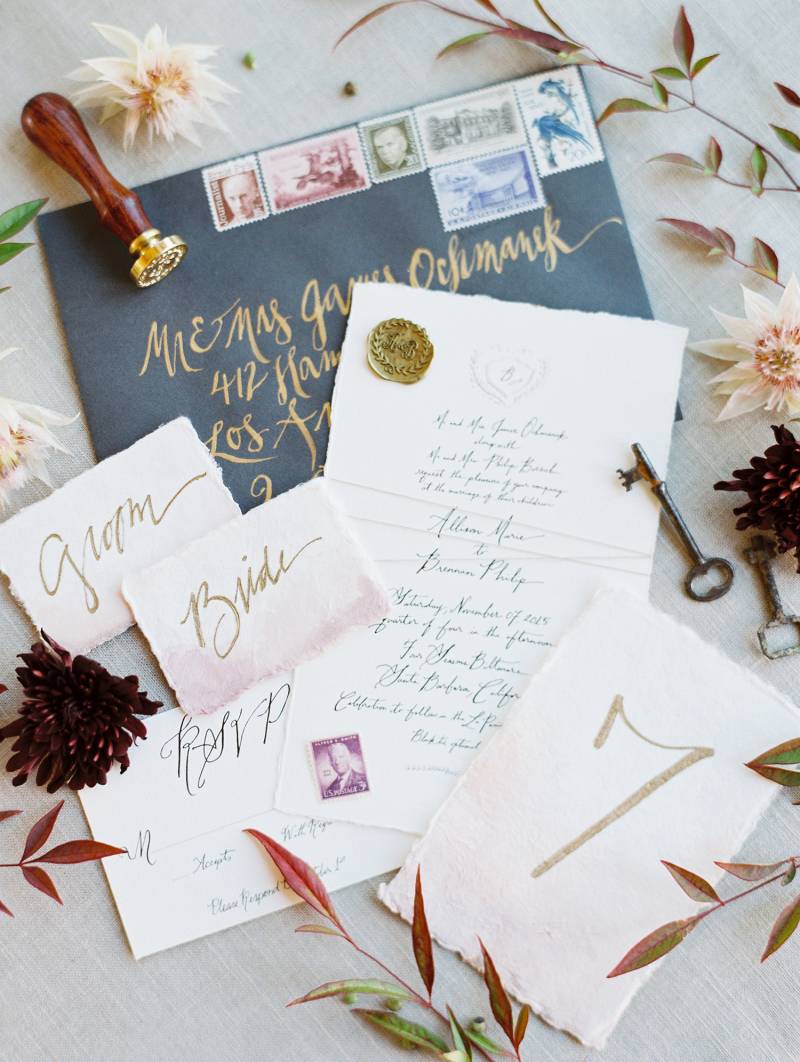 Mr & Mrs James Ochmanek
412
Los
B
Mr and Mrs. James Ochmanek
along with
Mr and Mrs. Philip
request the pleasure of your company
at the marriage of their children
Allison Marie
to
Brennan Philip
Saturday, November 07 2015
quarter of four in the afternoon
Four Seasons Biltmore
Santa Barbara, Califor
Celebration to follow in the La Pa
Black tie optional
Groom
Bride
ALFRED E. SMITH
U.S. POSTAGE 3¢
RSVP
M
Accepts
With Regr
Please Respond
7